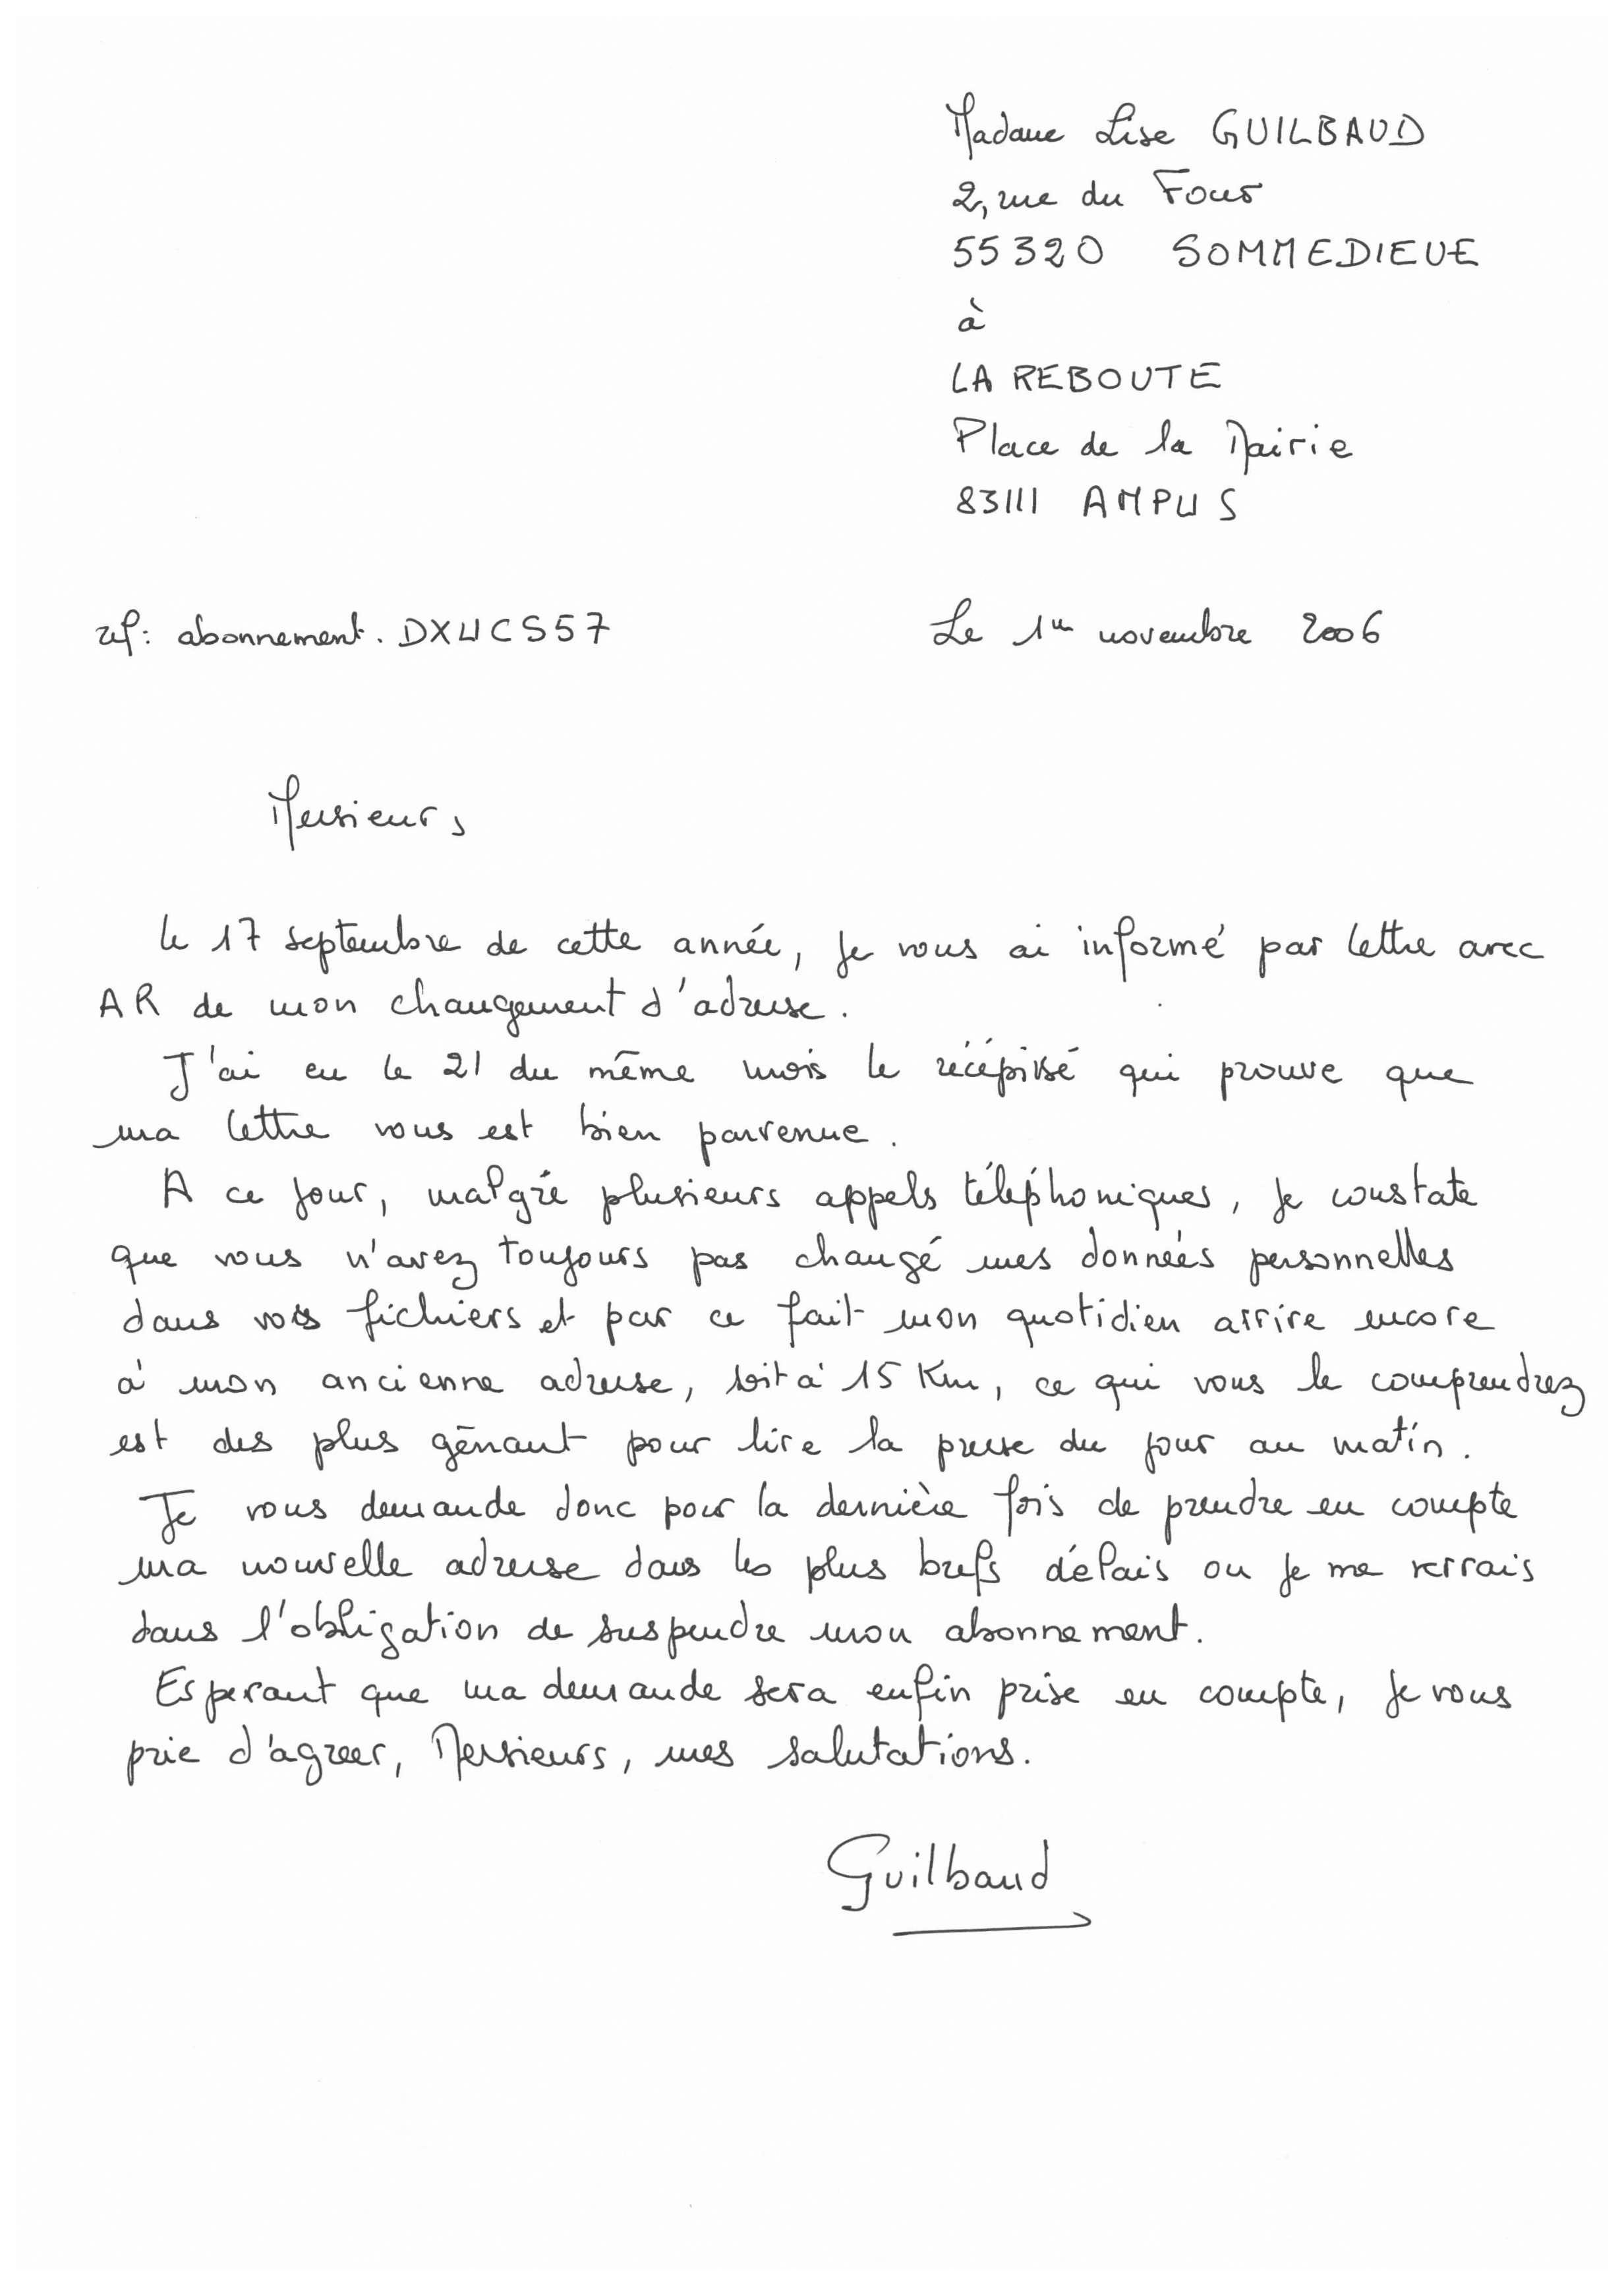 Madame Lise GUILBAUD
2, rue du Four
55320 SOMMEDIEUE
à
LA REBOUTE
Place de la Mairie
83111 AMPUS
réf: abonnement. DXUCS57
Le 1er novembre 2006
Messieurs
Le 17 septembre de cette année, je vous ai informé par lettre avec
AR de mon changement d'adresse.
J'ai eu le 21 du même mois le récépissé qui prouve que
ma lettre vous est bien parvenue.
A ce jour, malgré plusieurs appels téléphoniques, je constate
que vous n'avez toujours pas changé mes données personnelles
dans vos fichiers et par ce fait mon quotidien arrive encore
à mon ancienne adresse, soit à 15 Km, ce qui vous le comprendrez
est des plus gênant pour lire la presse du jour au matin.
Je vous demande donc pour la dernière fois de prendre en compte
ma nouvelle adresse dans les plus brefs délais ou je me verrais
dans l'obligation de suspendre mon abonnement.
Esperant que ma demande sera enfin prise en compte, je vous
prie d'agreer, Messieurs, mes salutations.
Guilbaud